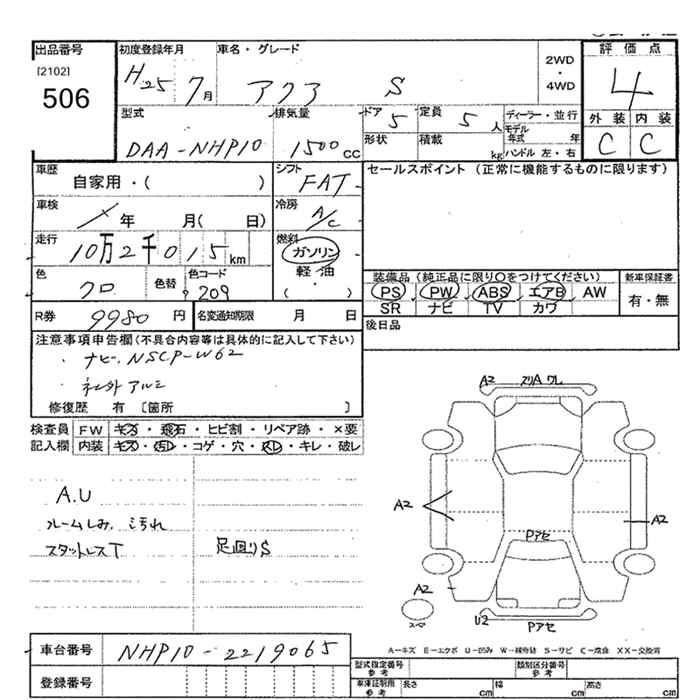 出品番号 初度登録年月 車名・グレード 2WD・4WD 評価点
[2102]
506
H25 7月 アクア S 4
型式 排気量 ドア 5 定員 5人 ディーラー・並行 外装 内装
DAA-NHP10 1500cc 形状 積載 kg モデル年式 年 C C
ハンドル 左・右
車歴 自家用・( ) シフト FAT セールスポイント (正常に機能するものに限ります)
車検 年 月( 日) 冷房 A/C
走行 10万2千015km 燃料 ガソリン 軽油 ( )
色 クロ 色替 色コード 209
装備品 (純正品に限り○をつけてください) 新車保証書
PS PW ABS エアB AW 有・無
SR ナビ TV カワ
R券 9980円 名変通知期限 月 日 後日品
注意事項申告欄(不具合内容等は具体的に記入して下さい)
ナビ、NSCP-W62
社外アルミ
修復歴 有 〔箇所 〕
検査員 FW キズ・飛石・ヒビ割・リペア跡・×要
記入欄 内装 キズ・汚レ・コゲ・穴・スレ・キレ・破レ
A.U
ルームしみ、汚れ
スタットレスT 足廻りS
A2 スリA ワレ
A2 A2
Pアセ
A2
スペア U2 Pアセ
A-キズ E-エクボ U-凹み W-補修跡 S-サビ C-腐食 XX-交換済
車台番号 NHP10-2219065
型式指定番号 参考 類別区分番号 参考
登録番号 車庫証明用 参考 長さ cm 幅 cm 高さ cm